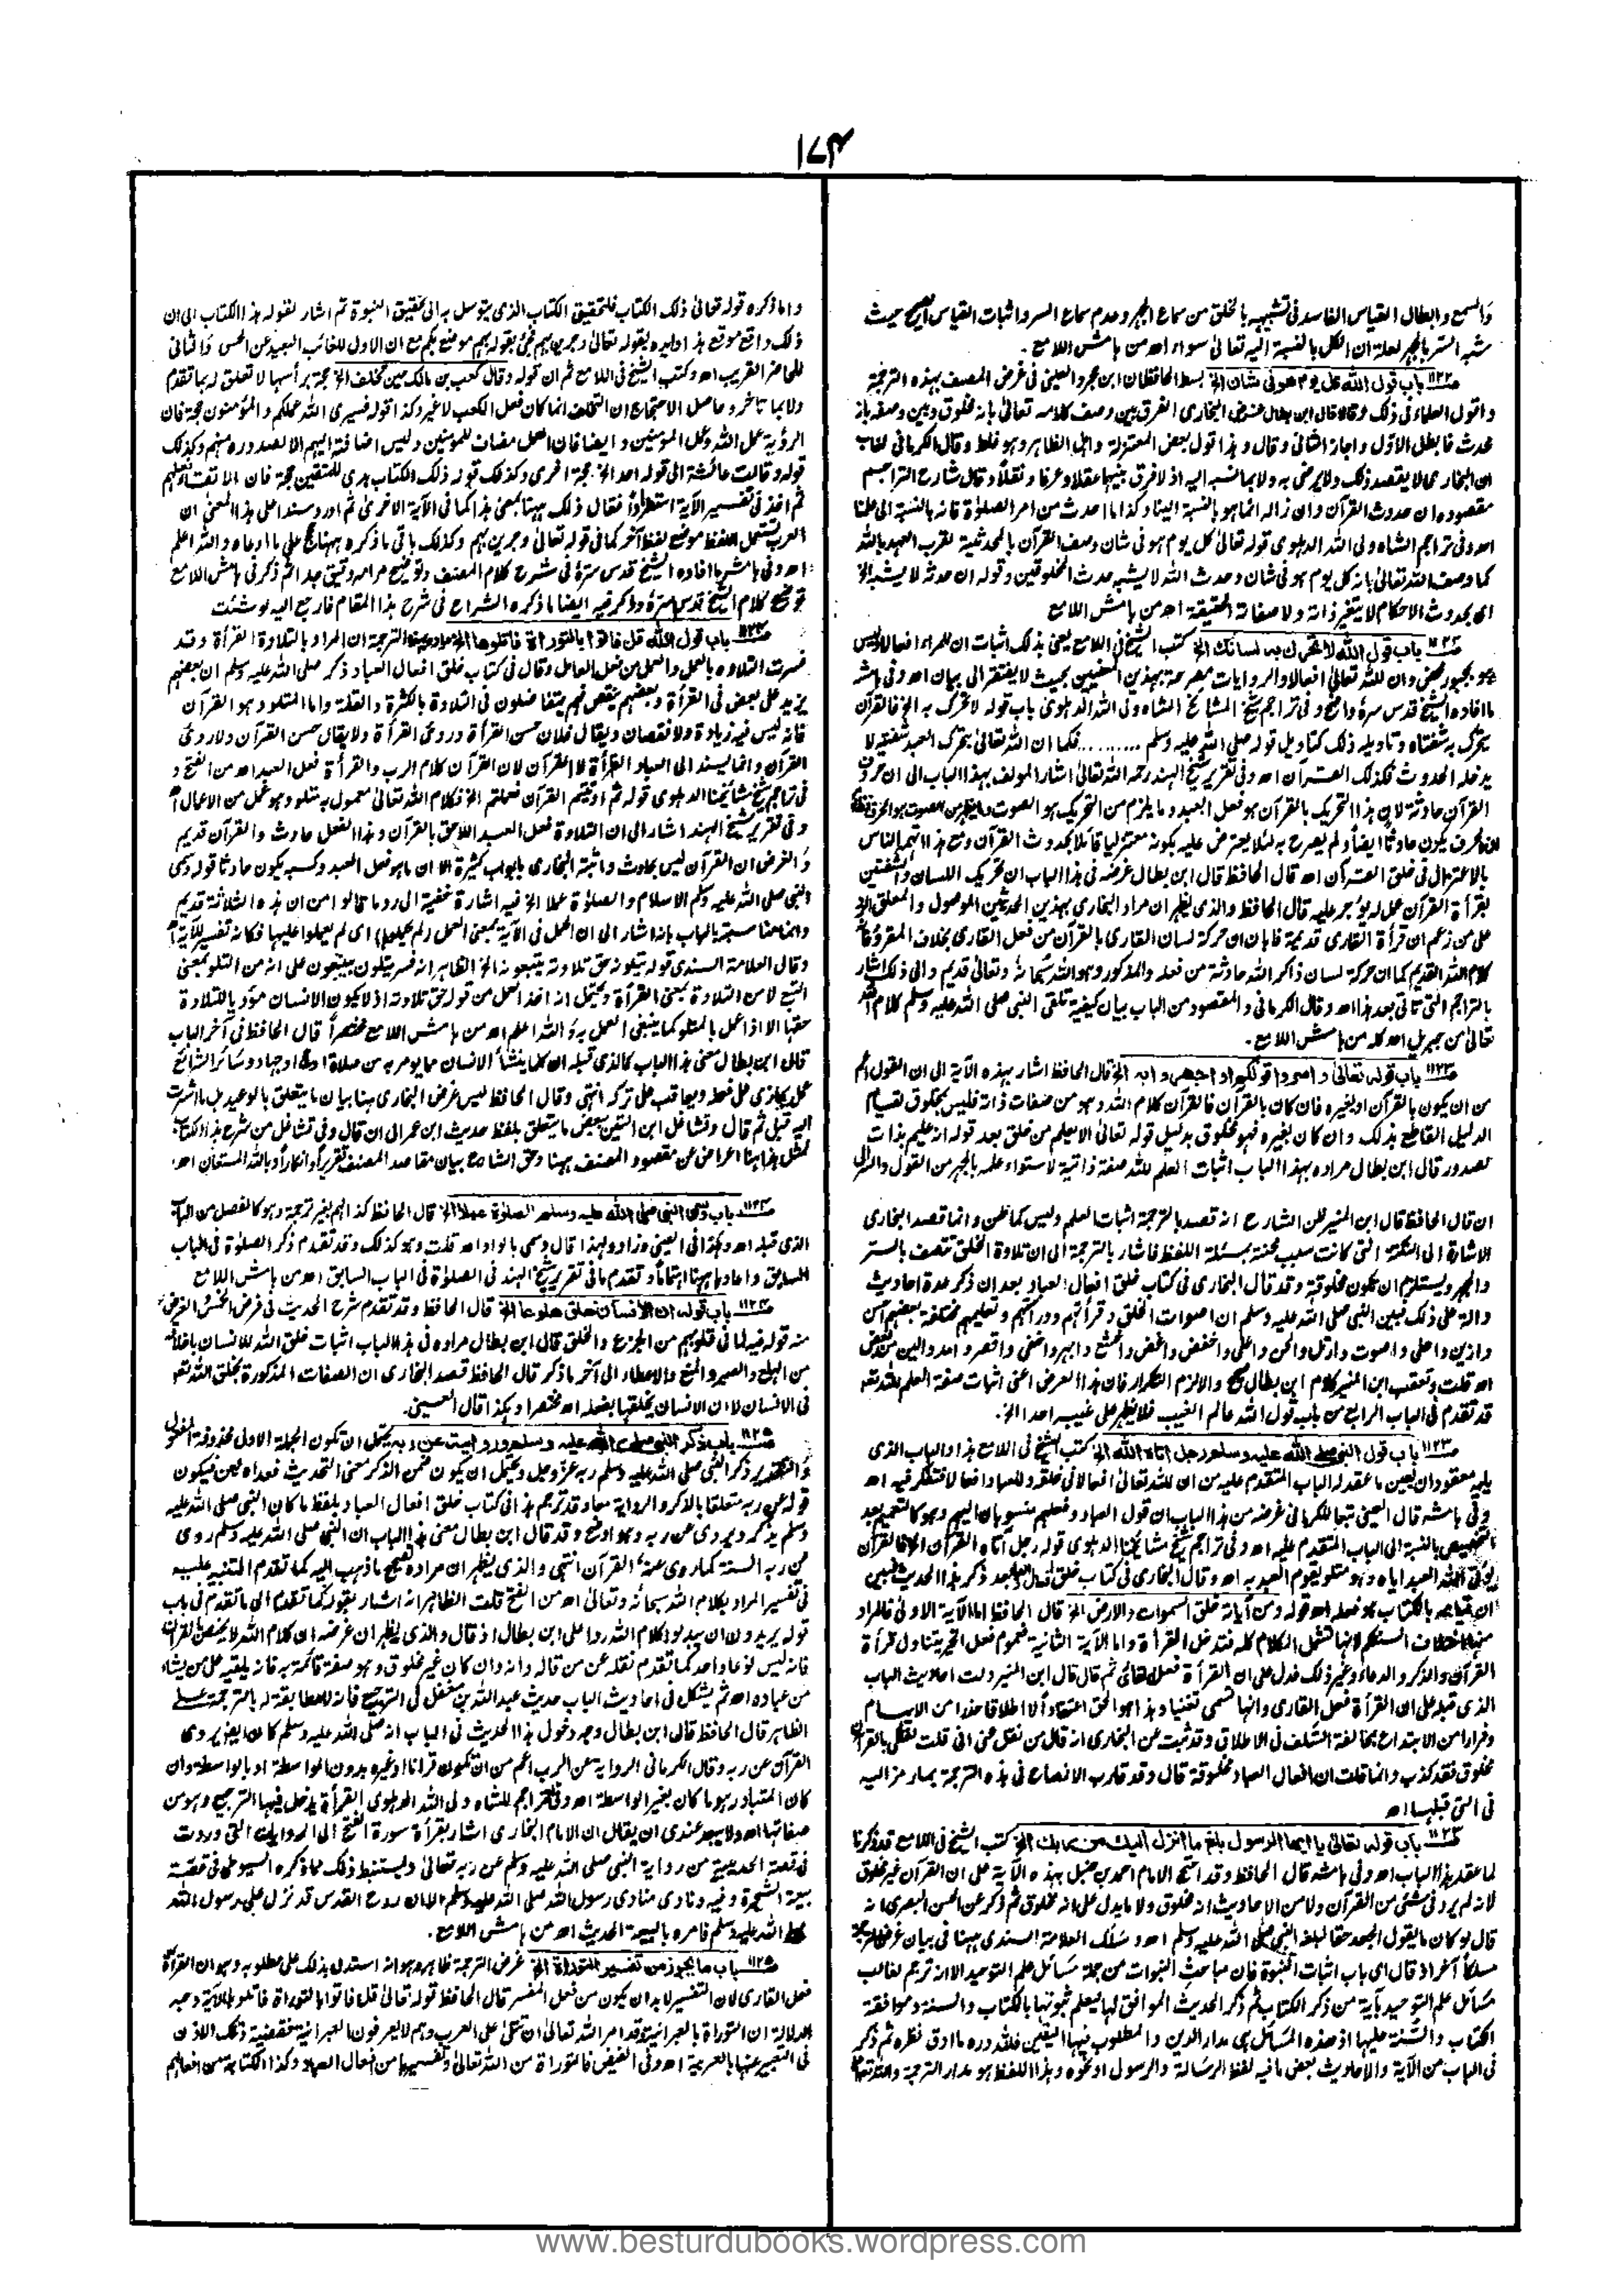 ١٧٤
والسمع وابطال القياس الفاسد فى تشبيهه بالخلق من سماع الجهر وعدم سماع السر واثبات القياس الصحيح حيث
شبه السر بالجهر لعلة ان الكل بالنسبة اليه تعالىٰ سواء اھ من ہامش اللامع .
باب قول الله كل يوم هو فى شان الخ بسط الحافظان ابن حجر والعينى فى غرض المصنف بہذہ الترجمة
واقول العلماء فى ذلك وقالا قال ابن بطال غرض البخارى الفرق بين وصف كلامه تعالىٰ بانه مخلوق وبين وصفه بانه
محدث فابطل الاول واجاز الثانى وقال وہذا قول بعض المعتزلة واہل الظاہر وہو غلط وقال الكرمانى لغاب
ان البخارى لا يقصد ذلك ولا يرضى به ولا بما نسبه اليه اذ لا فرق بينہما عقلا وعرفا ونقلاً وقال شارح التراجم
مقصوده ان حدوث القرآن وانزاله انما ہو بالنسبة الينا وكذا ما احدث من امر الصلوٰة فانه بالنسبة الى علمنا
اھ وفى تراجم الشاه ولى الله الدہلوى قوله تعالىٰ كل يوم ہو فى شان وصف القرآن بالمحدثية لقرب العہد بالله
كما وصف الله تعالىٰ بانه كل يوم ہو فى شان وحدث الله لا يشبه حدث المخلوقين وقوله ان حدثه لا يشبه الخ
اى بحدوث الاحكام لا يتغير ذاته ولا صفاته الحقيقة اھ من ہامش اللامع
باب قول الله لا تحرك به لسانك الخ كتب الشيخ فى اللامع يعنى بذلك اثبات ان للمرء افعالا وليس
ہو بمجبور محض وان لله تعالىٰ افعالا والروايات مصرحة بہذين المعنيين بحيث لا يفتقر الى بيان اھ وفى ہامشه
ما افاده الشيخ قدس سره واضح وفى تراجم شيخ المشائخ الشاه ولى الله الدہلوى باب قوله لا تحرك به الخ فالقرآن
يتحرك به شفتاه وتاويله ذلك كتاويل قوله صلى الله عليه وسلم .......... فكما ان الله تعالىٰ بتحرك العبد شفتيه لا
يدخله الحدوث فكذلك القرآن اھ وفى تقرير شيخ الہند رحمه الله تعالىٰ اشار المولف بہذا الباب الى ان حروف
القرآن حادثة لان ہذا التحريك بالقرآن ہو فعل العبد وما يلزم من التحريك ہو الصوت
يكون حادثا ايضاً ولم يصرح به لئلا يعترض عليه بكونه معتزليا قائلا بحدوث القرآن ومع ہذا اتہمه الناس
بالاعتزال فى خلق القرآن اھ قال الحافظ قال ابن بطال غرضه فى ہذا الباب ان تحريك اللسان والشفتين
بقرأة القرآن عمل له يؤجر عليه قال الحافظ والذى يظہر ان مراد البخارى بہذين الحديثين الموصول والمعلق الرد
على من زعم ان قرأة القارى قديمة فابان ان حركة لسان القارى بالقرآن من فعل القارى بخلاف المقروء فانه
كلام الله القديم كما ان حركة لسان ذاكر الله حادثة من فعله والمذكور وہو الله سبحانه وتعالىٰ قديم والى ذلك اشار
بالتراجم التى تاتى بعد ہذا اھ وقال الكرمانى والمقصود من الباب بيان كيفية تلقى النبى صلى الله عليه وسلم كلام الله
تعالىٰ من جبريل اھ كله من ہامش اللامع .
باب قوله تعالىٰ واسروا قولكم او اجهروا به الخ قال الحافظ اشار بہذه الآية الى ان القول اعم
من ان يكون بالقرآن او بغيره فان كان بالقرآن فالقرآن كلام الله وہو من صفات ذاته فليس بمخلوق لقيام
الدليل القاطع بذلك وان كان بغيره فہو مخلوق بدليل قوله تعالىٰ الا يعلم من خلق بعد قوله انه عليم بذات
الصدور قال ابن بطال مراده بہذا الباب اثبات العلم لله صفة ذاتية لاستواء علمه بالجہر من القول والسر الى
ان قال الحافظ قال ابن المنير ظن الشارح انه قصد بالترجمة اثبات العلم وليس كما ظن وانما قصد البخارى
الاشارة الى النكتة التى كانت سبب محنته بمسئلة اللفظ فاشار بالترجمة الى ان تلاوة الخلق تتصف بالسر
والجہر ويستلزم ان تكون مخلوقة وقد قال البخارى فى كتاب خلق افعال العباد بعد ان ذكر عدة احاديث
دالة على ذلك فبين النبى صلى الله عليه وسلم ان اصوات الخلق وقرأتہم ودراستہم وتعليمہم مختلفة بعضہم احسن
وازين واحلى واصوت وارتل والحن واعلى واخفض واغض واخشع واجہر واخفى واقصر وامد والين من بعض
اھ قلت وتعقب ابن المنير كلام ابن بطال صحيح والا لزم التكرار فان ہذا الغرض اعنى اثبات صفة العلم لله تعالىٰ
قد تقدم فى الباب الرابع من باب قول الله عالم الغيب فلا يظہر على غيبه احدا الخ.
باب قول النبى صلى الله عليه وسلم رجل آتاه الله الخ كتب الشيخ فى اللامع ہذا والباب الذى
يليه معقودان بعين ما عقد له الباب المتقدم عليه من ان لله تعالىٰ افعالا فى خلقه وللعباد افعالا فتفكر فيه اھ
وفى ہامشه قال العينى تبعا للكرمانى غرضه من ہذا الباب ان قول العباد وفعلہم منسوبان اليہم وہو كالتعميم بعد
التخصيص بالنسبة الى الباب المتقدم عليه اھ وفى تراجم شيخ مشائخنا الدہلوى قوله رجل آتاه القرآن الخ فالقرآن
يؤتى الله العبد اياه وہو متلو يقوم العبد به اھ وقال البخارى فى كتاب خلق افعال العباد بعد ذكر ہذا الحديث فبين
ان قيامه بالكتاب ہو فعله اھ قوله ومن آياته خلق السموات والارض الخ قال الحافظ اما الآية الاولى فالمراد
منہا اختلاف السنتكم لانہا تشمل الكلام كله فتدخل القرأة واما الآية الثانية فعموم فعل الخير يتناول قرأة
القرآن والذكر والدعاء وغير ذلك فدل على ان القرأة فعل القارى ثم قال قال ابن المنير دلت احاديث الباب
الذى قبله على ان القرأة فعل القارى وانہا تسمى تغنيا وہذا ہو الحق اعتقاداً لا اطلاقا حذرا من الايہام
وفرارا من الابتداع بمخالفة السلف فى الاطلاق وقد ثبت عن البخارى انه قال من نقل عنى انى قلت لفظى بالقرآن
مخلوق فقد كذب وانما قلت ان افعال العباد مخلوقة قال وقد قارب الافصاح فى ہذه الترجمة بما رمز اليه
فى التى قبلہا اھ
باب قوله تعالىٰ يا ايها الرسول بلغ ما انزل اليك من ربك الخ كتب الشيخ فى اللامع قد ذكرنا
لما عقد ہذا الباب اھ وفى ہامشه قال الحافظ وقد احتج الامام احمد بن حنبل بہذه الآية على ان القرآن غير مخلوق
لانه لم يرد فى شئ من القرآن ولا من الاحاديث انه مخلوق ولا ما يدل على انه مخلوق ثم ذكر عن الحسن البصرى انه
قال لو كان ما يقول الجعد حقا لبلغه النبى صلى الله عليه وسلم اھ وسلك العلامة السندى ہہنا فى بيان غرض الترجمة
مسلكاً آخر اذ قال اى باب اثبات النبوة فان مباحث النبوات من جملة مسائل علم التوحيد الا انه ترجم لغالب
مسائل علم التوحيد بآية من ذكر الكتاب ثم ذكر الحديث الموافق لہا ليعلم ثبوتہا بالكتاب والسنة وموافقة
الكتاب والسنة عليہا اذ ہذه المسائل ہى مدار الدين والمطلوب فيہا اليقين فلله دره ما ادق نظره ثم ذكر
فى الباب من الآية والاحاديث بعض ما فيه لفظ الرسالة والرسول او نحوه وہذا اللفظ ہو مدار الترجمة
واما ذكره قوله تعالىٰ ذلك الكتاب فلتحقيق الكتاب الذى يتوسل به الى تحقيق النبوة ثم اشار لقوله ہذا الكتاب الى ان
ذلك واقع موقع ہذا وايده بقوله تعالىٰ وجرين بہم فجئ بقوله بہم موضع بكم مع ان الاول للغائب البعيد عن الحس والثانى
للحاضر القريب اھ وكتب الشيخ فى اللامع ثم ان قوله وقال كعب بن مالك حين تخلف الخ حجة برأسہا لا تعلق له بما تقدم
ولا بما تاخر وحاصل الاحتجاج ان التخلف انما كان فعل الكعب لا غير وكذا قوله فسيرى الله عملكم والمؤمنون حجة فان
الرؤية عمل الله وعمل المؤمنين وايضا فان العمل مضاف للمومنين وليس اضافته اليہم الا لصدوره منہم وكذلك
قوله وقالت عائشة الى قوله احد الخ حجة اخرى وكذلك قوله ذلك الكتاب ہدى للمتقين حجة فان الاتقاء فعلہم
ثم اخذ فى تفسير الآية استطراداً فقال ذلك ہہنا بمعنى ہذا كما فى الآية الاخرىٰ ثم اورد سندا على ہذا المعنى ان
العرب تستعمل اللفظ موضع لفظ آخر كما فى قوله تعالىٰ وجرين بہم وكذلك باقى ما ذكره ہہنا حجج على ما ادعاه والله اعلم
اھ وفى ہامشه ما افاده الشيخ قدس سرهٗ فى شرح كلام المصنف وتوضيح مرامه دقيق جدا ثم ذكر فى ہامش اللامع
توضيح كلام الشيخ قدس سرهٗ وذكر فيه ايضا ما ذكره الشراح فى شرح ہذا المقام فارجع اليه لو شئت
باب قول الله قل فاتوا بالتوراة فاتلوها الخ مراده بہذه الترجمة ان المراد بالتلاوة القرأة وقد
فسرت التلاوة بالعمل والعمل من فعل العامل وقال فى كتاب خلق افعال العباد ذكر صلى الله عليه وسلم ان بعضہم
يزيد على بعض فى القرأة وبعضہم ينقص فہم يتفاضلون فى التلاوة بالكثرة والقلة واما المتلو وہو القرآن
فانه ليس فيه زيادة ولا نقصان ويقال فلان حسن القرأة وردئ القرأة ولا يقال حسن القرآن ولا ردئ
القرآن وانما يسند الى العباد القرأة لا القرآن لان القرآن كلام الرب والقرأة فعل العبد اھ من الفتح و
فى تراجم شيخ مشائخنا الدہلوى قوله ثم اوتيتم القرآن فعملتم الخ فكلام الله تعالىٰ معمول به متلو وہو عمل من الاعمال اھ
وفى تقرير شيخ الہند اشار الى ان التلاوة فعل العبد اللاحق بالقرآن وہذا الفعل حادث والقرآن قديم
والغرض ان القرآن ليس بحادث واثبته البخارى بابواب كثيرة الا ان ما ہو فعل العبد وكسبه يكون حادثا قوله وسمى
النبى صلى الله عليه وسلم الاسلام والصلوٰة عملا الخ فيه اشارة خفية الى رد ما قالوا من ان ہذه الثلاثة قديم
مناسبته بالباب بانه اشار الى ان الحمل فى الآية بمعنى العمل (لم يحملوہا) اى لم يعملوا عليہا فكانه تفسير للآية اھ
وقال العلامة السندى قوله يتلونه حق تلاوته يتبعونه الخ الظاہر انه فسر يتلون بيتبعون على انه من التلو بمعنى
التبع لا من التلاوة بمعنى القرأة ويحتمل انه اخذ العمل من قوله حق تلاوته اذ لا يكون الانسان مؤديا للتلاوة
حقہا الا اذا عمل بالمتلو كما ينبغى العمل به والله اعلم اھ من ہامش اللامع مختصراً قال الحافظ فى آخر الباب
قال ابن بطال معنى ہذا الباب كالذى قبله ان كل ما ينشأ الانسان مما يومر به من صلاة او حج او جہاد وسائر الشرائع
عمل يجازى على فعله ويعاقب على تركه انتہى وقال الحافظ ليس غرض البخارى ہنا بيان ما يتعلق بالوعيد بل ما اشرت
اليه قبل ثم قال وتشاغل ابن التين ببعض ما يتعلق بلفظ حديث ابن عمر الى ان قال وفى تشاغل من شرح ہذا الكتاب
بمثل ہذا ہنا اعراض عن مقصود المصنف ہہنا وحق الشارح بيان مقاصد المصنف تقريراً وانكاراً وبالله المستعان اھ.
باب وسمى النبى صلى الله عليه وسلم الصلوٰة عملا الخ قال الحافظ كذا لہم بغير ترجمة وہو كالفصل من الباب
الذى قبله اھ وہكذا فى العينى وزاد ولہذا قال وسمى بالواو اھ قلت وہو كذلك وقد تقدم ذكر الصلوٰة فى الباب
السابق واعادہا ہہنا اہتماماً وتقدم ما فى تقرير شيخ الہند فى الصلوٰة فى الباب السابق اھ من ہامش اللامع
باب قوله ان الانسان خلق هلوعا الخ قال الحافظ وقد تقدم شرح الحديث فى فرض الخمس والغرض
منه قوله فيه لما فى قلوبہم من الجزع والہلع قال ابن بطال مراده فى ہذا الباب اثبات خلق الله للانسان باخلاقه
من الہلع والصبر والمنع والاعطاء الى آخر ما ذكر قال الحافظ قصد البخارى ان الصفات المذكورة بخلق الله تعالىٰ
فى الانسان لا ان الانسان يخلقہا بفعله اھ مختصرا وہكذا قال العينى.
باب ذكر النبى صلى الله عليه وسلم وروايته عن ربه يحتمل ان تكون الجملة الاولى محذوفة المفعول
والتقدير ذكر النبى صلى الله عليه وسلم ربه عز وجل ويحتمل ان يكون ضمن الذكر معنى التحديث فعداه بعن فيكون
قوله عن ربه متعلقا بالذكر والرواية معا وقد ترجم ہذا فى كتاب خلق افعال العباد بلفظ ما كان النبى صلى الله عليه
وسلم يذكر ويروى عن ربه وہو اوضح وقد قال ابن بطال معنى ہذا الباب ان النبى صلى الله عليه وسلم روى
عن ربه السنة كما روى عنه القرآن انتہى والذى يظہر ان مراده تصحيح ما ذہب اليه كما تقدم التنبيه عليه
فى تفسير المراد بكلام الله سبحانه وتعالىٰ اھ من الفتح قلت الظاہر انه اشار بقوله كما تقدم الى ما تقدم فى باب
قوله يريدون ان يبدلوا كلام الله ردا على ابن بطال اذ قال والذى يظہر ان غرضه ان كلام الله لا يختص بالقرآن
فانه ليس نوعا واحدا كما تقدم نقله عن من قاله وانه وان كان غير مخلوق وہو صفة قائمة به فانه يلقيه على من يشاء
من عباده اھ ثم يشكل فى احاديث الباب حديث عبد الله بن مغفل فى الترجيع فانه لا مطابقة له بالترجمة على
الظاہر قال الحافظ قال ابن بطال وجه دخول ہذا الحديث فى الباب انه صلى الله عليه وسلم كان ايضا يروى
القرآن عن ربه وقال الكرمانى الرواية عن الرب اعم من ان تكون قرانا او غيره بدون الواسطة او بالواسطة وان
كان المتبادر ہو ما كان بغير الواسطة اھ وفى تراجم الشاه ولى الله الدہلوى القرأة يدخل فيہا الترجيع وہو من
صفاتہا اھ ولا يبعد عندى ان يقال ان الامام البخارى اشار بقرأة سورة الفتح الى الروايات التى وردت
فى قصة الحديبية من رواية النبى صلى الله عليه وسلم عن ربه تعالىٰ ويستنبط ذلك مما ذكره السيوطى فى قصة
بيعة الشجرة وفيه ونادى منادى رسول الله صلى الله عليه وسلم الا ان روح القدس قد نزل على رسول الله
صلى الله عليه وسلم فامره بالبيعة الحديث اھ من ہامش اللامع .
باب ما يجوز من تفسير التوراة الخ غرض الترجمة ظاہر وہو انه استدل بذلك على مطلوبه وہو ان القرأة
فعل القارى لان التفسير لا بد ان يكون من فعل المفسر قال الحافظ قوله تعالىٰ قل فاتوا بالتوراة فاتلوہا الآية وجه
الدلالة ان التوراة بالعبرانية وقد امر الله تعالىٰ ان تتلى على العرب وہم لا يعرفون العبرانية فقضية ذلك الاذن
فى التعبير عنہا بالعربية اھ وفى الفيض فالتوراة من الله تعالىٰ وتفسيرہا من افعال العباد وكذا الكتابة من افعالہم
www.besturdubooks.wordpress.com